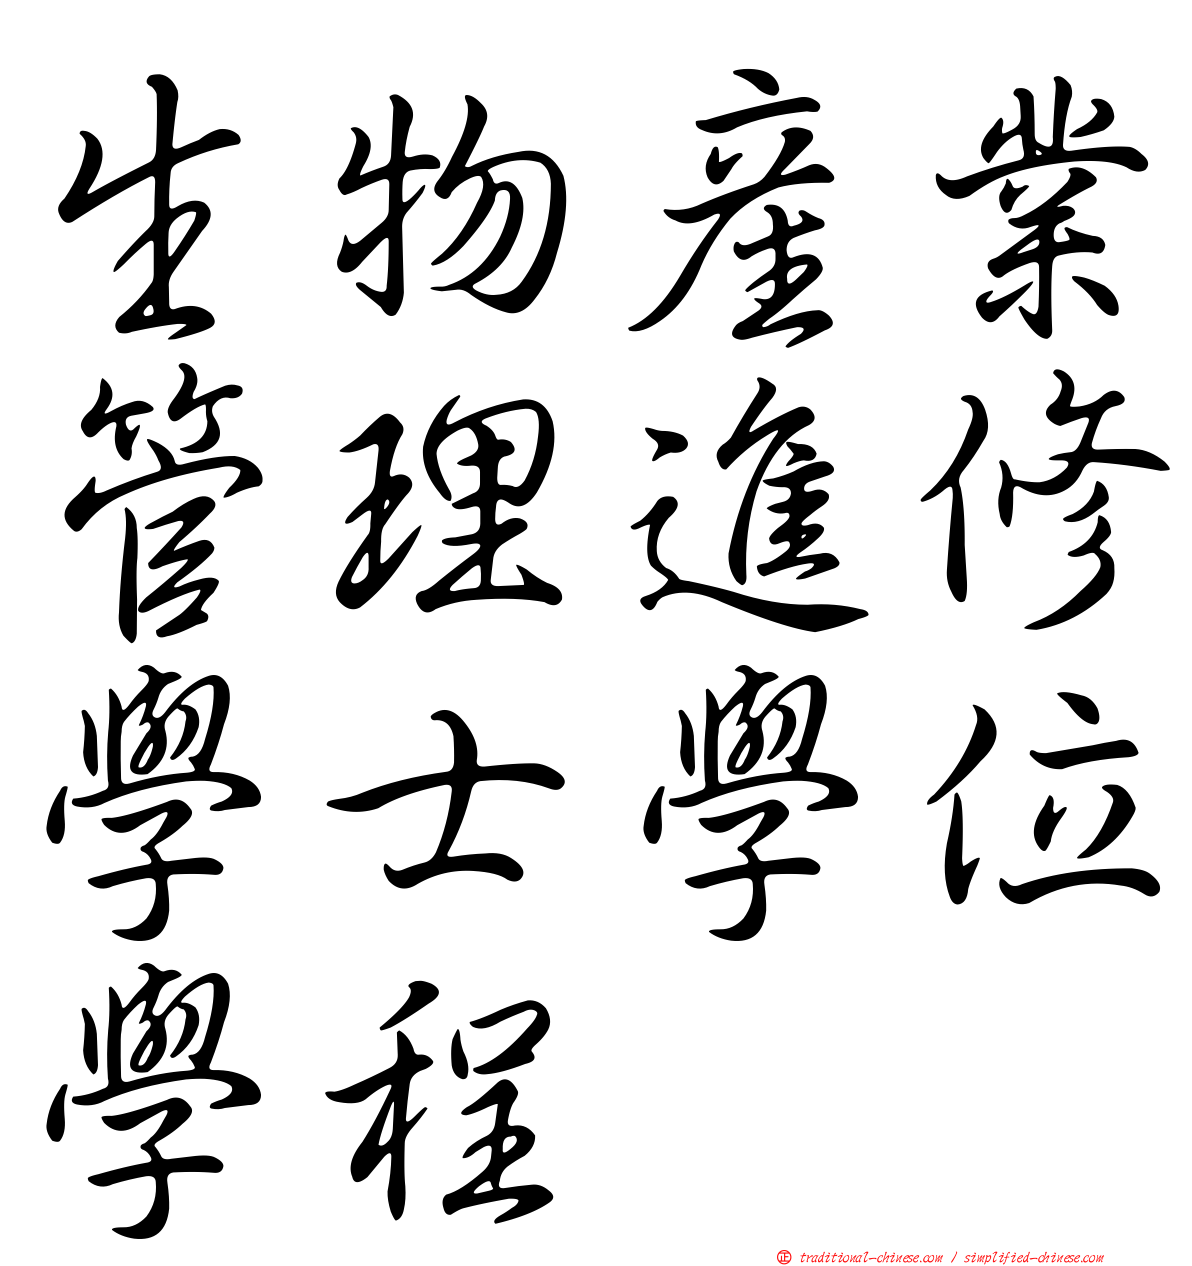 生物産業
管理進修
學士學位
學程
正 traditional-chinese.com / simplified-chinese.com